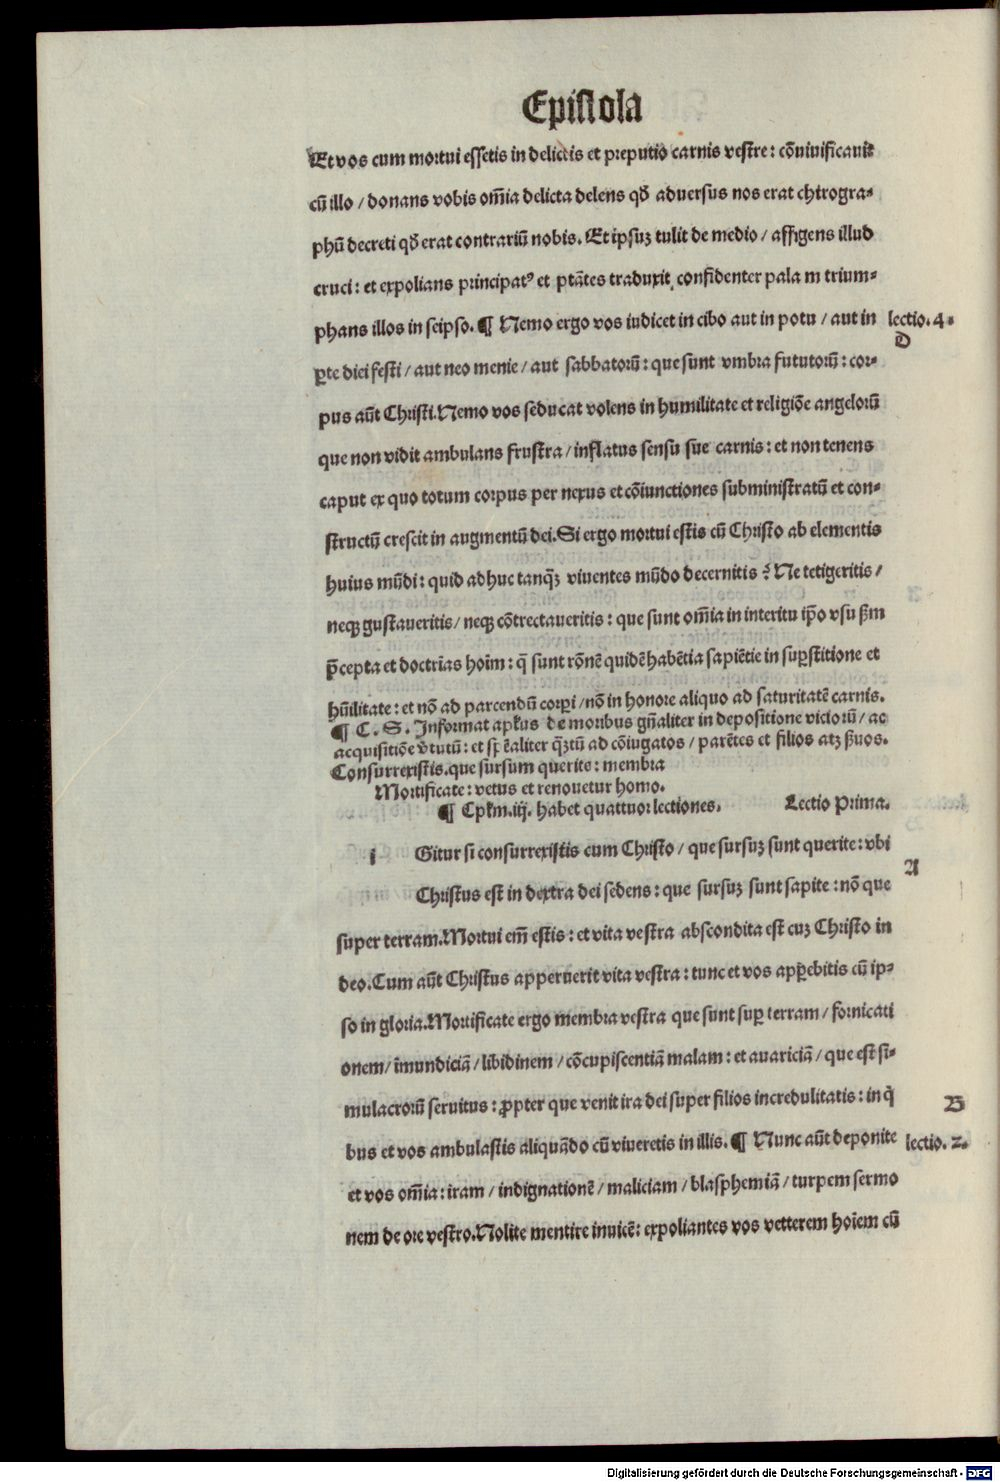 Epistola
Et vos cum mortui essetis in delictis et preputio carnis vestre: cõuiuificauit
cũ illo / donans vobis om̃ia delicta delens qđ aduersus nos erat chirogra⸗
phũ decreti qđ erat contrariũ nobis. Et ipsuz tulit de medio / affigens illud
cruci: et expolians principatꝰ et ptãtes traduxit confidenter pala m trium⸗
phans illos in seipso. ¶ Nemo ergo vos iudicet in cibo aut in potu / aut in lectio. 4.
D
ꝑte diei festi / aut neo menie / aut sabbatorũ: que sunt vmbra fututorũ: cor⸗
pus aũt Christi. Nemo vos seducat volens in humilitate et religiõe angelorũ
que non vidit ambulans frustra / inflatus sensu sue carnis: et non tenens
caput ex quo totum corpus per nexus et cõiunctiones subministratũ et con⸗
structũ crescit in augmentũ dei. Si ergo mortui estis cũ Christo ab elementis
huius mũdi: quid adhuc tanq̃ꝫ viuentes mũdo decernitis? Ne tetigeritis /
neqꝫ gustaueritis / neqꝫ cõtrectaueritis: que sunt om̃ia in interitu ip̃o vsu ẞm
p̃cepta et doctrĩas hoĩm: q̃ sunt rõnẽ quidẽ habẽtia sapiẽtie in suꝑstitione et
hũilitate: et nõ ad parcendũ corpori / nõ in honore aliquo ad saturitatẽ carnis.
¶ C. S. Informat apłus de moribus gñaliter in depositione viciorũ / ac
acquisitiõe v̓tutũ: et sp̃ẽaliter q̃ꝫtũ ad cõiugatos / parẽtes et filios atqꝫ ẞuos.
Consurrexistis. que sursum querite: membra
Mortificate: vetus et renouetur homo.
¶ Cpłm. iij. habet quattuor lectiones. Lectio Prima.
i Gitur si consurrexistis cum Christo / que sursuz sunt querite: vbi
A
Christus est in dextra dei sedens: que sursuz sunt sapite: nõ que
super terram. Mortui em̃ estis: et vita vestra abscondita est cuz Christo in
deo. Cum aũt Christus apperuerit vita vestra: tunc et vos apꝑebitis cũ ip⸗
so in gloria. Mortificate ergo membra vestra que sunt suꝑ terram / fornicati
onem / ĩmundiciã / libidinem / cõcupiscentiã malam: et auariciã / que est si⸗
mulacrorũ seruitus: ꝓpter que venit ira dei super filios incredulitatis: in q̃
B
bus et vos ambulastis aliquãdo cũ viueretis in illis. ¶ Nunc aũt deponite lectio. 2.
et vos om̃ia: iram / indignationẽ / maliciam / blasphemiã / turpem sermo
nem de ore vestro. Nolite mentire inuicẽ: expoliantes vos vetterem hoĩem cũ
Digitalisierung gefördert durch die Deutsche Forschungsgemeinschaft - DFG